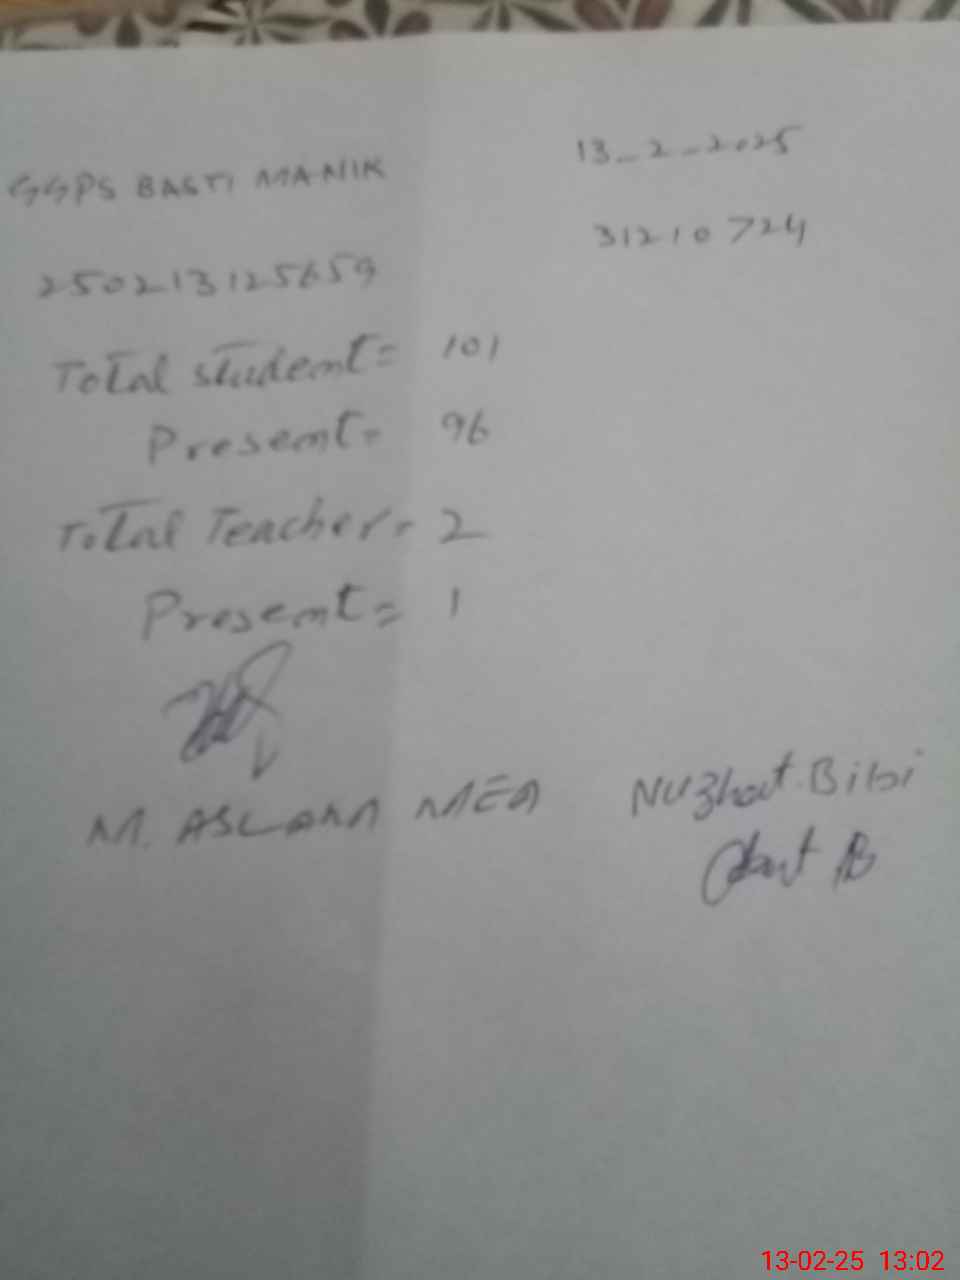 GGPS BASTI MANIK
13-2-2025
31210724
250213125659
Total student = 101
Present = 96
Total Teacher = 2
Present = 1
M. ASLAM MEA
Nuzhat Bibi
13-02-25 13:02